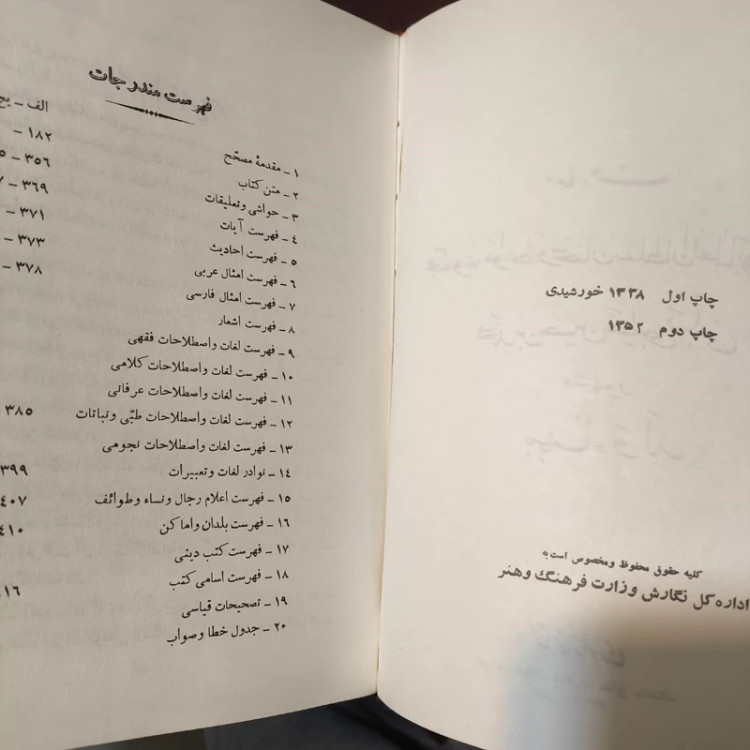 چاپ اول ۱۳۳۸ خورشیدی
چاپ دوم ۱۳۵۲
کلیه حقوق محفوظ ومخصوص است به
اداره کل نگارش وزارت فرهنگ وهنر
فهرست مندرجات
۱ ـ مقدمهٔ مصحّح الف ـ یح
۲ ـ متن کتاب ـ ۱۸۲
۳ ـ حواشی وتعلیقات ـ ۳۵۶
۴ ـ فهرست آیات ـ ۳۶۹
۵ ـ فهرست احادیث ـ ۳۷۱
۶ ـ فهرست امثال عربی ـ ۳۷۳
۷ ـ فهرست امثال فارسی ـ ۳۷۸
۸ ـ فهرست اشعار
۹ ـ فهرست لغات واصطلاحات فقهی
۱۰ ـ فهرست لغات واصطلاحات کلامی
۱۱ ـ فهرست لغات واصطلاحات عرفانی
۱۲ ـ فهرست لغات واصطلاحات طبّی و نباتات ۳۸۵
۱۳ ـ فهرست لغات واصطلاحات نجومی
۱۴ ـ نوادر لغات وتعبیرات ۳۹۹
۱۵ ـ فهرست اعلام رجال ونساء وطوائف ۴۰۷
۱۶ ـ فهرست بلدان واماکن ۴۱۰
۱۷ ـ فهرست کتب دینی
۱۸ ـ فهرست اسامی کتب ۱۶
۱۹ ـ تصحیحات قیاسی
۲۰ ـ جدول خطا وصواب